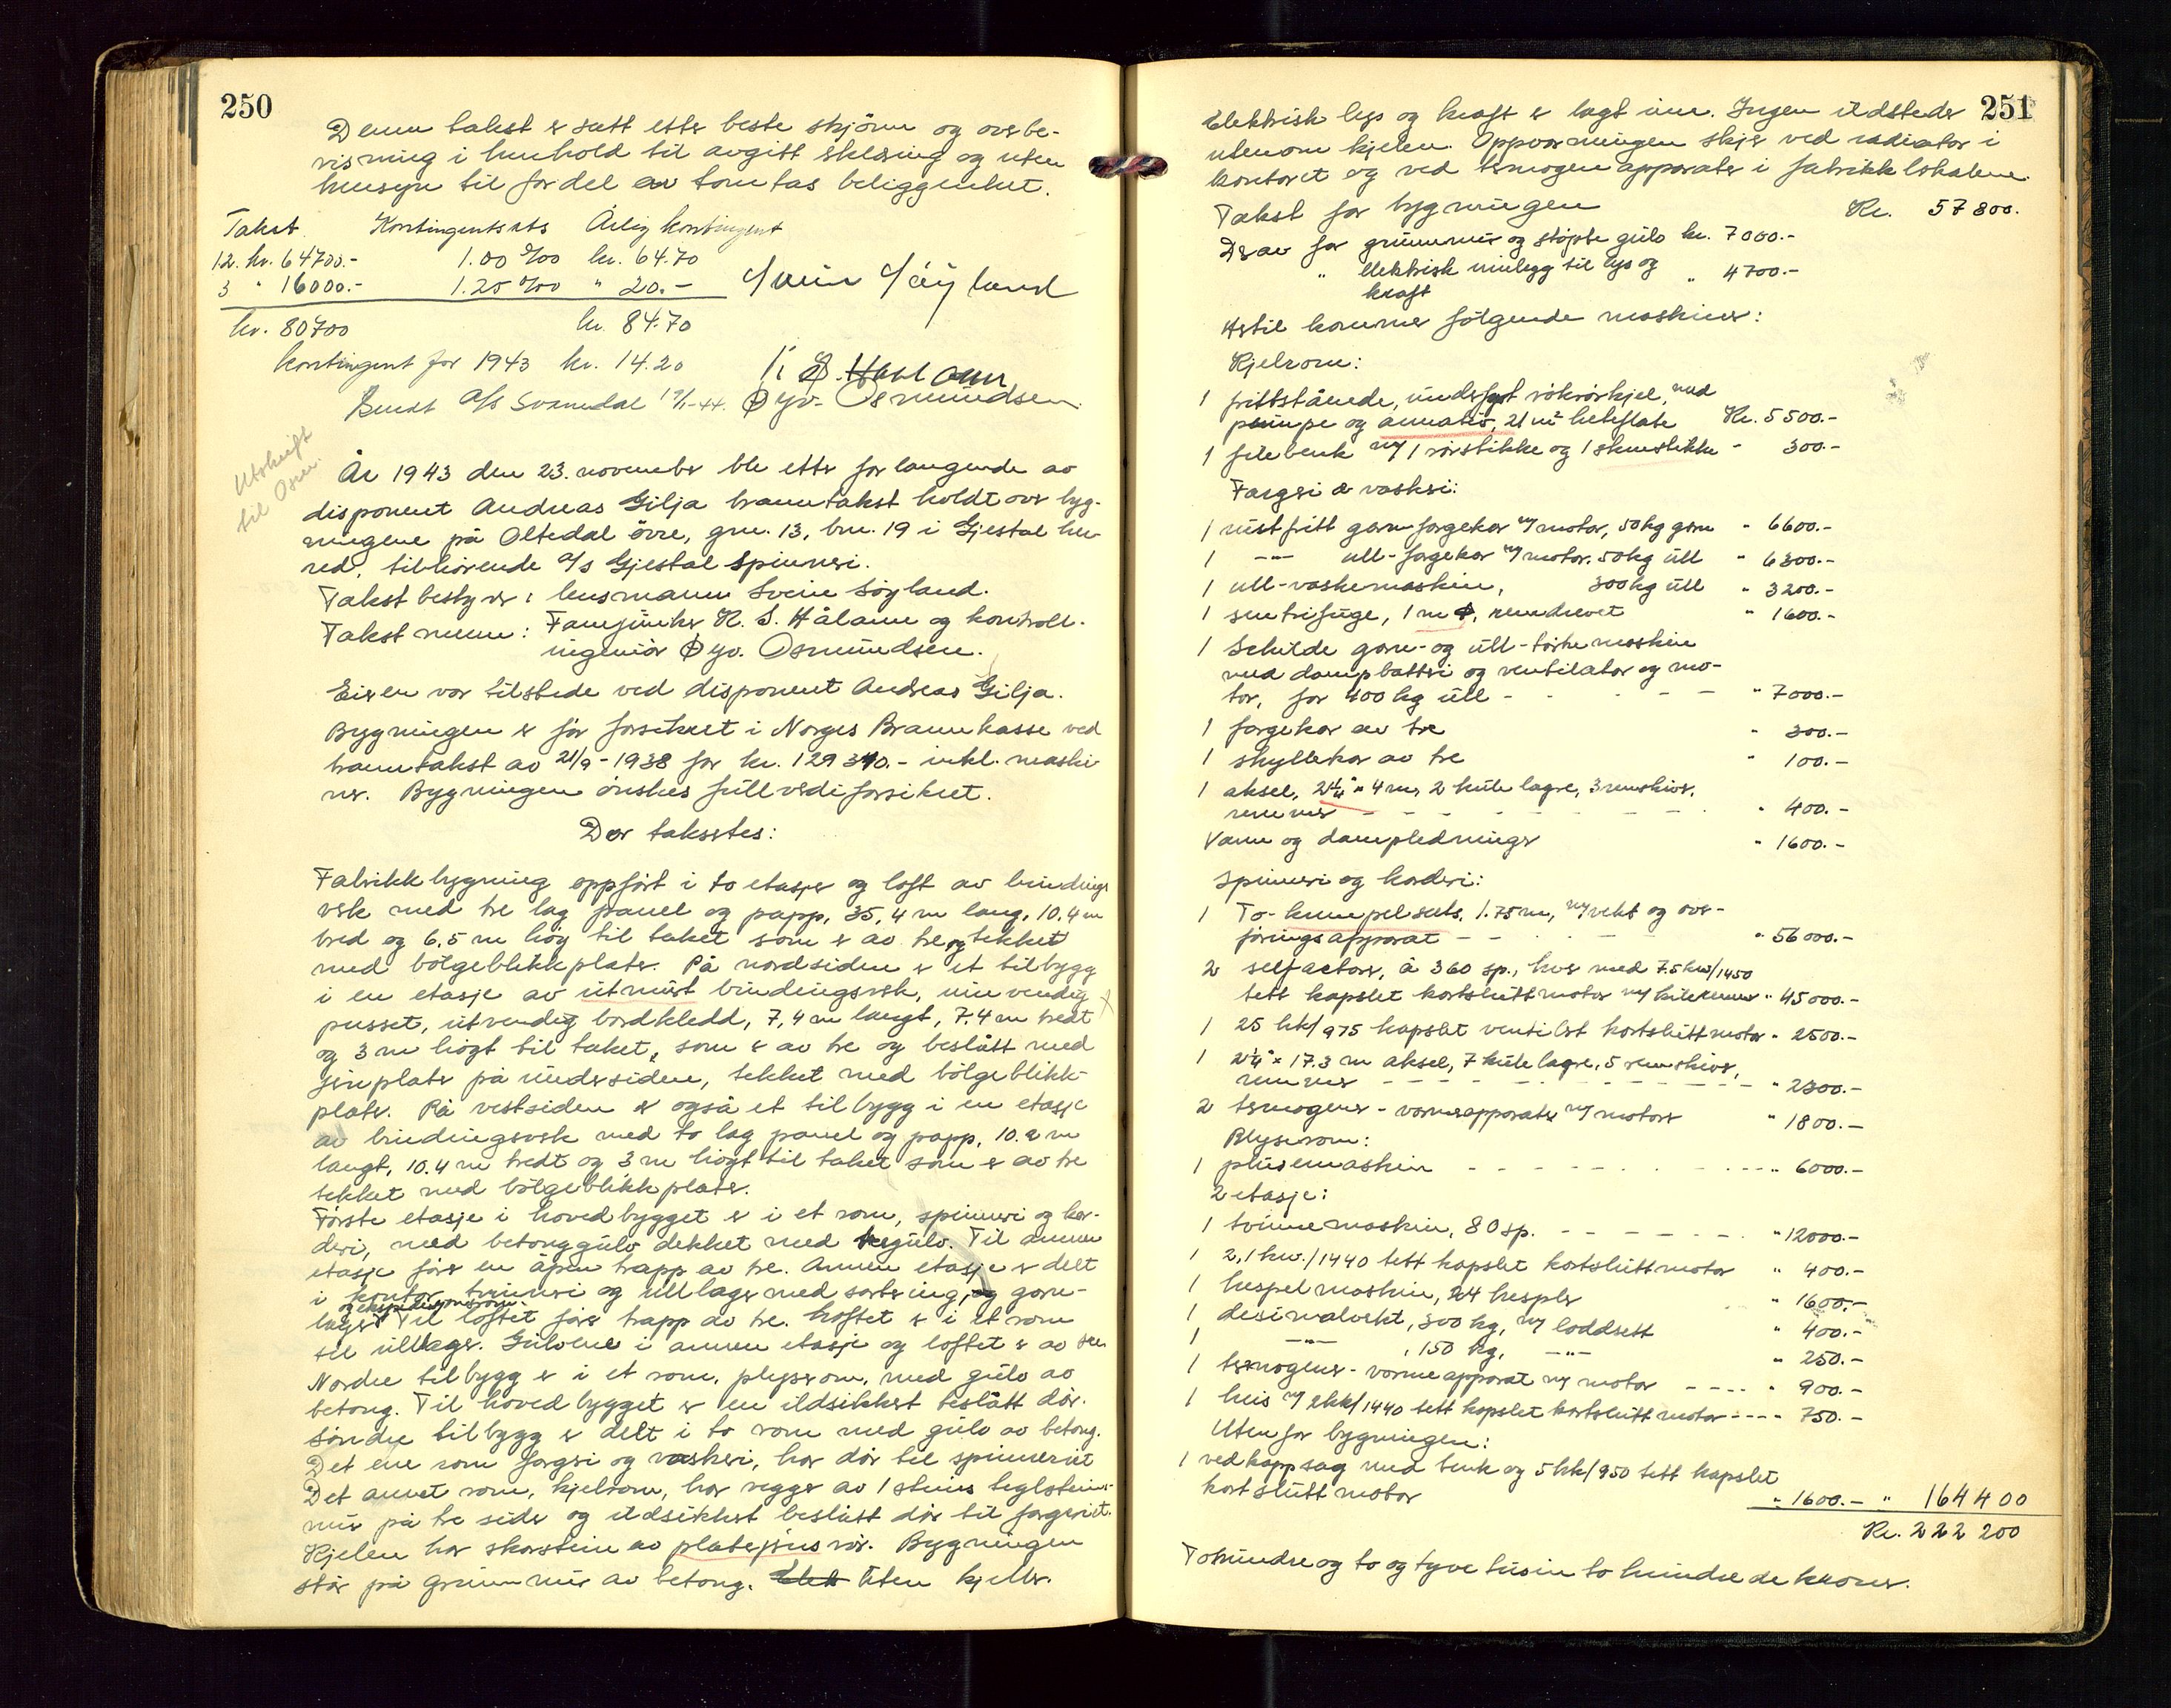 250
Denne takst er satt etter beste skjönn og overbe-
visning i henhold til avgitt erklæring og uten
hensyn til fordel av tomtas beliggenhet.
Takst Kontingentsats Årlig kontingent
12. kr. 64700.- 1.00 ‰ kr. 64.70
3 " 16000.- 1.25 ‰ " 20.-
Svein Söyland
kr. 80700 kr. 84.70
Kontingent for 1943 kr. 14.20
K S. Haaland
Sendt A/S Svanedal Öyv. Osmundsen.
Utskrift
til Osm.
År 1943 den 23. november ble etter forlangende av
disponent Andreas Gilja branntakst holdt over byg-
ningene på Oltedal övre, gnr. 13, bnr. 19 i Gjestal her-
red, tilhörende A/S Gjestal Spinneri.
Takstbestyrer: lensmann Svein Söyland.
Takstmenn: Fanejunker K. S. Håland og kontroll-
ingeniör Öyv. Osmundsen.
Eieren var tilstede ved disponent Andreas Gilja.
Bygningen er för forsikret i Norges Brannkasse ved
branntakst av 21/9-1938 for kr. 129 390.- inkl. maski-
ner. Bygningen önskes fullverdiforsikret.
Der takseres:
Fabrikkbygning oppfört i to etasjer og loft av bindings-
verk med tre lag panel og papp, 35,4 m lang, 10.4 m
bred og 6.5 m höy til taket som er av tre og tekket
med bölgeblikkplater. På nordsiden er et tilbygg
i en etasje av utmurt bindingsverk, innvendig
pusset, utvendig bordkledd, 7,4 m langt, 7.4 m bredt
og 3 m högt til taket, som er av tre og beslått med
jernplater på undersiden, tekket med bölgeblikk-
plater. På vestsiden er også et tilbygg i en etasje
av bindingsverk med to lag panel og papp, 10.2 m
langt, 10.4 m bredt og 3 m högt til taket som er av tre
tekket med bölgeblikkplater.
Förste etasje i hovedbygget er i et rom, spinneri og kar-
deri, med betonggulv dekket med tregulv. Til annen
etasje förer en åpen trapp av tre. Annen etasje er delt
i kontor, tvinneri og ullager med sortering, og garn-
og ekspedisjonsrom.
lager. Til loftet förer trapp av tre. Loftet er i et rom
til ullager. Gulvene i annen etasje og loftet er av tre.
Nordre tilbygg er i et rom, plyserom, med gulv av
betong. Til hovedbygget er en ildsikkert beslått dör.
Söndre tilbygg er delt i to rom med gulv av betong.
Det ene rom fargeri og vaskeri, har dör til spinneriet
Det annet rom, kjelrom, har vegger av 1 steins teglsteins-
mur på tre sider og ildsikkert beslått dör til fargeriet.
Kjelen har skorstein av platejernsrör. Bygningen
står på grunnmur av betong. Uten kjeller.
251
Elektrisk lys og kraft er lagt inn. Ingen ildsteder
utenom kjelen. Oppvarmingen skjer ved radiator i
kontoret og ved termogenapparater i fabrikklokalene.
Takst for bygningen Kr. 57800.
Derav for grunnmur og stöpte gulv kr. 7000.-
" elektrisk innlegg til lys og " 4700.-
kraft
Hertil kommer fölgende maskiner:
Kjelrom:
1 frittstående, underfyrt rökrörkjel, med
pumpe og armatur, 21 m² heteflate Kr. 5500.-
1 filebenk m/ 1 rörstikke og 1 skruestikke - 300.-
Fargeri & vaskeri:
1 rustfritt garnfargekar m/ motor, 50 kg garn " 6600.-
1 -"- ull-fargekar m/ motor. 50 kg ull " 6300.-
1 ull-vaskemaskin, 300 kg ull " 3200.-
1 sentrifuge, 1 m Φ, remdrevet " 1600.-
1 Schilde garn- og ull-törkemaskin
med dampbatteri og ventilator og mo-
tor, for 400 kg ull - - - - " 7000.-
1 fargekar av tre " 300.-
1 skyllekar av tre " 100.-
1 aksel, 2¼" × 4 m, 2 kulelagre, 3 remskiver,
remmer - - - - " 400.-
Vann og dampledninger " 1600.-
Spinneri og karderi:
1 To-krempelsats, 1.75 m, m/ vekt og over-
föringsapparat - - - " 56000.-
2 selfactorer, à 360 sp., hver med 7.5 kw/1450
tett kapslet kortsluttmotor m/ kileremmer " 45000.-
1 25 hk/975 kapslet ventilert kortsluttmotor " 2500.-
1 2¼" × 17.3 m aksel, 7 kulelagre, 5 remskiver,
remmer - - - - " 2300.-
2 termogener-varmeapparater m/ motorer " 1800.-
Plyserom:
1 plysemaskin - - - - " 6000.-
2 etasje:
1 tvinnemaskin, 80 sp. - - - - " 12000.-
1 2,1 kw./1440 tett kapslet kortsluttmotor " 400.-
1 hespelmaskin, 24 hespler " 1600.-
1 desimalvekt, 300 kg, m/ loddsett " 400.-
1 -"- , 150 kg, -"- " 250.-
1 termogener-varmeapparat m/ motor - - - " 900.-
1 heis m/ 2hk/1440 tett kapslet kortsluttmotor - - - - 750.-
Utenfor bygningen:
1 vedkappsag med benk og 5 hk/950 tett kapslet
kortsluttmotor " 1600.- " 164 400
Kr. 222 200
Tohundre og to og tyve tusin to hundrede kroner.